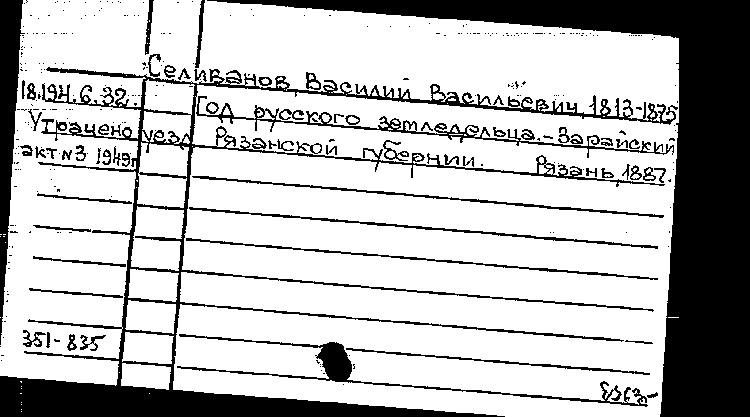 Селиванов, Василий Васильевич, 1813-1875
18.194.6.32. Год русского земледельца.-Зарайский
Утрачено уезд Рязанской губернии. Рязань, 1887.
акт №3 1949г
351-835